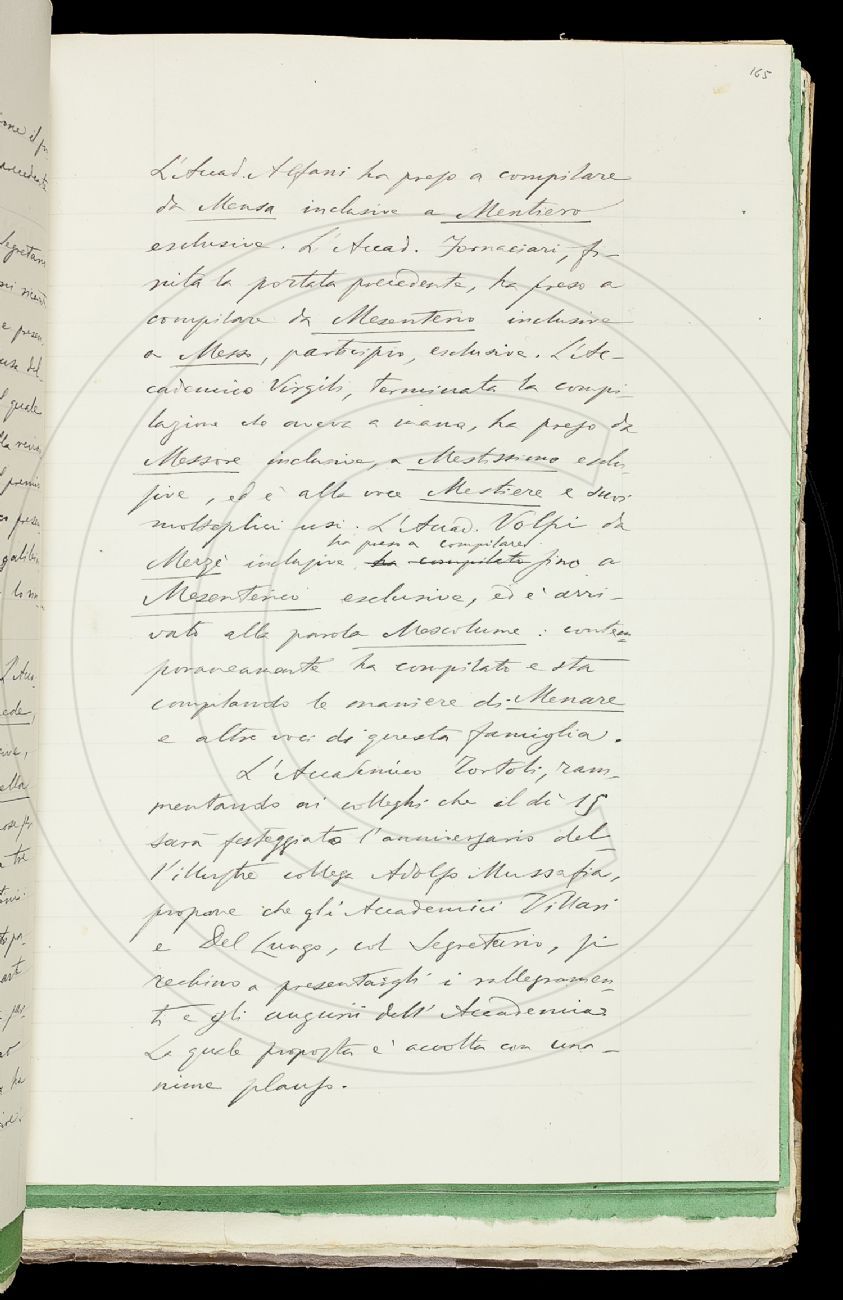 165
L'Accad. Alfani ha preso a compilare
da Mensa inclusive a Mentiero
esclusive. L'Accad. Fornaciari, fi-
nita la portata precedente, ha preso a
compilare da Mesenterio inclusive
a Messo, participio, esclusive. L'Ac-
cademico Virgili, terminata la compi-
lazione che aveva a mano, ha preso da
Messore inclusive, a Mestissimo esclu-
sive, ed è alla voce Mestiere e suoi
molteplici usi. L'Accad. Volpi da
ha preso a compilare
Merzè inclusive ha compilato fino a
Mesenterico esclusive, ed è arri-
vato alla parola Mescolume: contem-
poraneamente ha compilato e sta
compilando le maniere di Menare
e altre voci di questa famiglia.
L'Accademico Tortoli, ram-
mentando ai colleghi che il dì 15
sarà festeggiato l'anniversario del-
l'illustre collega Adolfo Mussafia,
propone che gli Accademici Villari
e Del Lungo, col Segretario, si
rechino a presentargli i rallegramen-
ti e gli augurii dell'Accademia.
La quale proposta è accolta con una-
nime plauso.